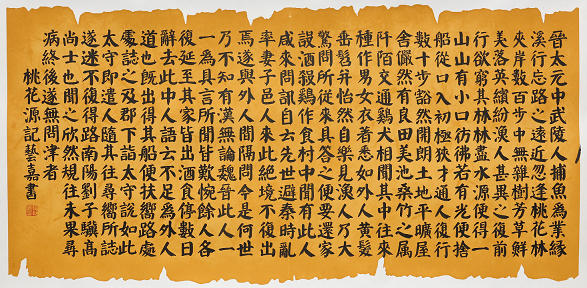 晉太元中武陵人捕魚為業緣
溪行忘路之遠近忽逢桃花林
夾岸數百步中無雜樹芳草鮮
美落英繽紛漁人甚異之復前
行欲窮其林林盡水源便得一
山山有小口彷彿若有光便捨
船從口入初極狹才通人復行
數十步豁然開朗土地平曠屋
舍儼然有良田美池桑竹之屬
阡陌交通鷄犬相聞其中往來
種作男女衣着悉如外人黃髮
垂髫并怡然自樂見漁人乃大
驚問所從來具答之便要還家
設酒殺鷄作食村中聞有此人
咸來問訊自云先世避秦時亂
率妻子邑人來此絕境不復出
焉遂與外人間隔問今是何世
乃不知有漢無論魏晉此人一
一為具言所聞皆歎惋餘人各
復延至其家皆出酒食停數日
辭去此中人語云不足為外人
道也既出得其船便扶嚮路處
處誌之及郡下詣太守說如此
太守即遣人隨其往尋嚮所誌
遂迷不復得路南陽劉子驥高
尚士也聞之欣然規往未果尋
病終後遂無問津者
桃花源記藝嘉書